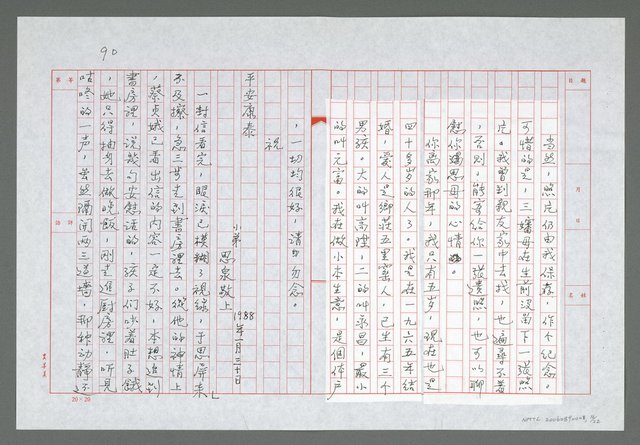 當然，照片仍由我保存，作個紀念。
可惜的是，三嬸母在生前沒留下一張照
片。我曾到親友家中去找，也遍尋不著
，否則，能寄給你一張遺照，也可以聊
慰你遙思母的心情。
你離家那年，我只有五岁，現在也是
四十多岁的人了。我是在一九六五年結
婚，愛人是鄉莊五里窰人，已生有三個
男孩。大的叫高陞，二的叫永昌，最小
的叫元富。我在做小本生意，是個体户
，一切均很好，請勿念。
祝
平安康泰
小弟 思泉敬上
1988年一月二十日」
一封信看完，眼淚已模糊了視線，于思屏來
不及擦，急三步走到書房裡去。從他的神情上
，蔡貞娥已看出信的內容一定不好，本想追到
書房裡，說幾句安慰話的，孩子们吵着肚子餓
，她只得抽身去做晚飯，刚走進厨房裡，听見
咕咚的一声，虽然隔開两三道墙，那种动靜不
90
題目
月
日
姓名
20×20
NMTL20060890008